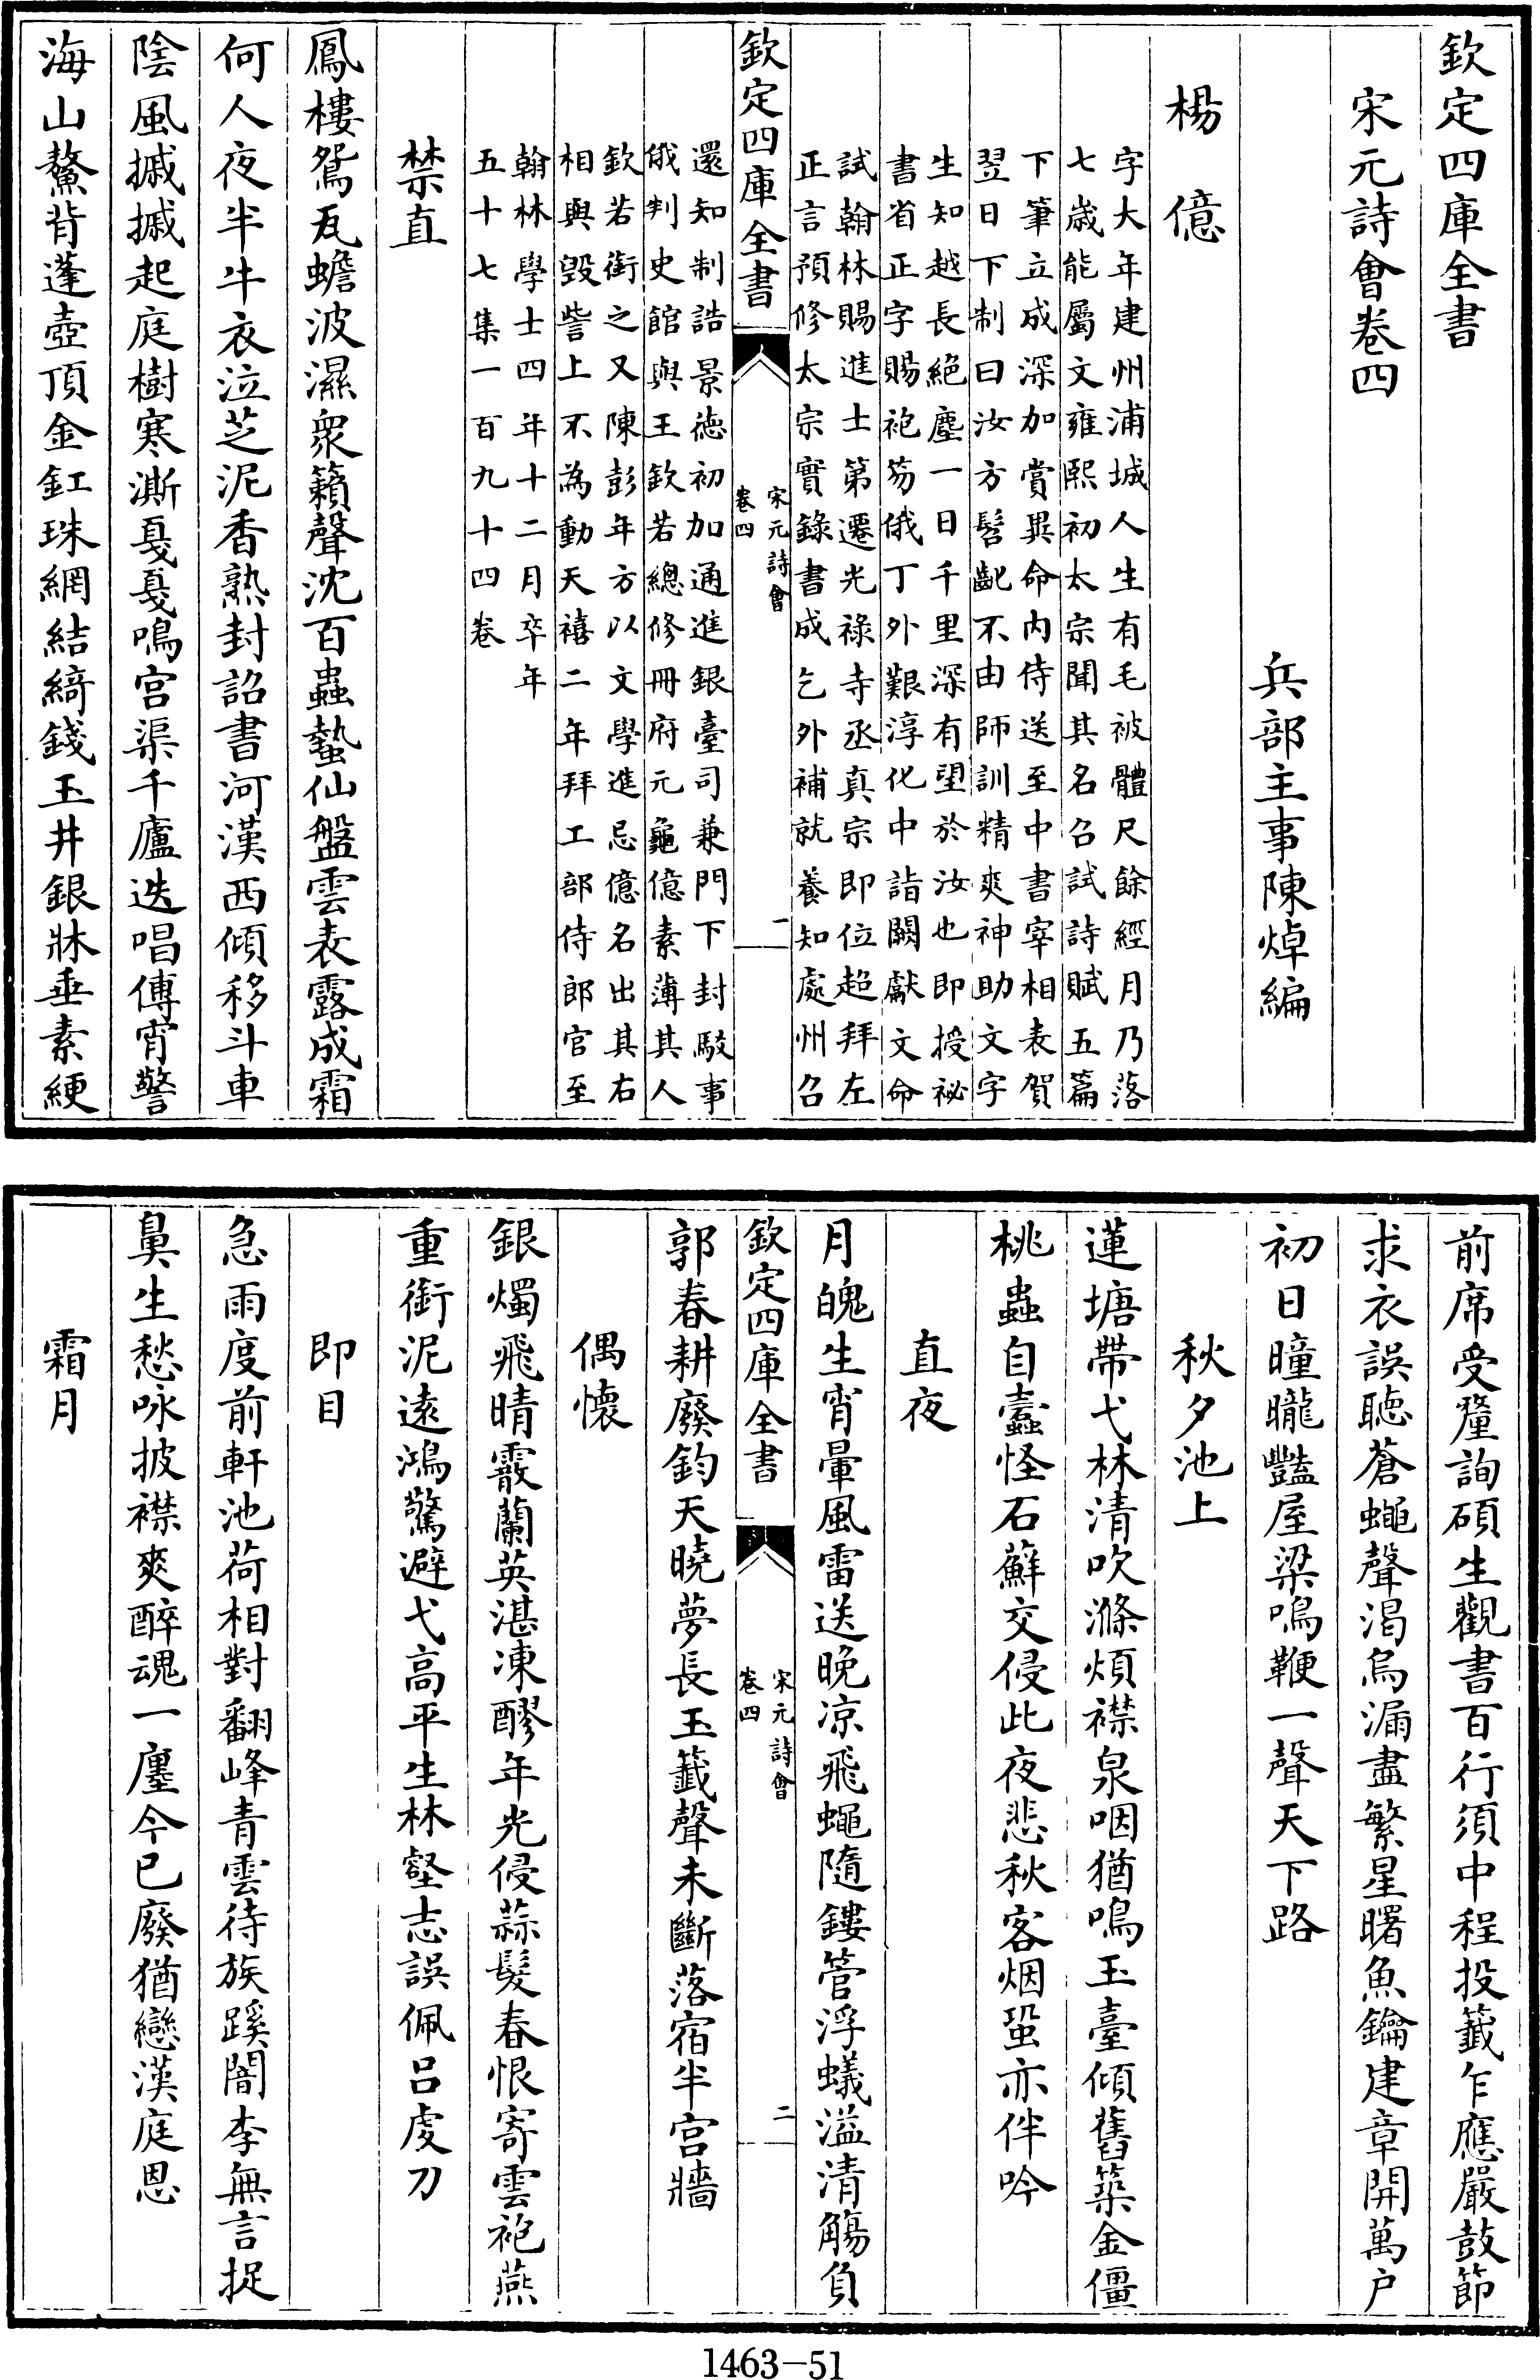 欽定四庫全書
宋元詩會卷四
兵部主事陳焯編
楊億
字大年建州浦城人生有毛被體尺餘經月乃落
七歲能屬文雍熙初太宗聞其名召試詩賦五篇
下筆立成深加賞異命内侍送至中書宰相表賀
翌日下制曰汝方髫齔不由師訓精爽神助文字
生知越長絶塵一日千里深有望於汝也即授祕
書省正字賜袍笏俄丁外艱淳化中詣闕獻文命
試翰林賜進士第遷光祿寺丞真宗即位超拜左
正言預修太宗實錄書成乞外補就養知處州召
欽定四庫全書
宋元詩會
卷四
一
還知制誥景德初加通進銀臺司兼門下封駁事
俄判史館與王欽若總修冊府元龜億素薄其人
欽若銜之又陳彭年方以文學進忌億名出其右
相與毀訾上不為動天禧二年拜工部侍郎官至
翰林學士四年十二月卒年
五十七集一百九十四卷
禁直
鳳樓鴛瓦蟾波濕衆籟聲沈百蟲蟄仙盤雲表露成霜
何人夜半牛衣泣芝泥香熟封詔書河漢西傾移斗車
陰風摵摵起庭樹寒澌戛戛鳴宫渠千廬迭唱傳宵警
海山鰲背蓬壺頂金釭珠網結綺錢玉井銀牀垂素綆
前席受釐詢碩生觀書百行須中程投籤乍應嚴鼓節
求衣誤聽蒼蠅聲渴烏漏盡繁星曙魚鑰建章開萬户
初日曈曨豔屋梁鳴鞭一聲天下路
秋夕池上
蓮塘帶弋林清吹滌煩襟泉咽猶鳴玉臺傾舊築金僵
桃蟲自蠹怪石蘚交侵此夜悲秋客烟蛩亦伴吟
直夜
月魄生宵暈風雷送晚凉飛蠅隨鏤管浮蟻溢清觴負
欽定四庫全書
宋元詩會
卷四
二
郭春耕廢鈞天曉夢長玉籤聲未斷落宿半宫牆
偶懷
銀燭飛晴霰蘭英湛凍醪年光侵蒜髮春恨寄雲袍燕
重銜泥遠鴻驚避弋高平生林壑志誤佩呂虔刀
即目
急雨度前軒池荷相對翻峰青雲待族蹊闇李無言捉
鼻生愁咏披襟爽醉魂一廛今已廢猶戀漢庭恩
霜月
1463-51